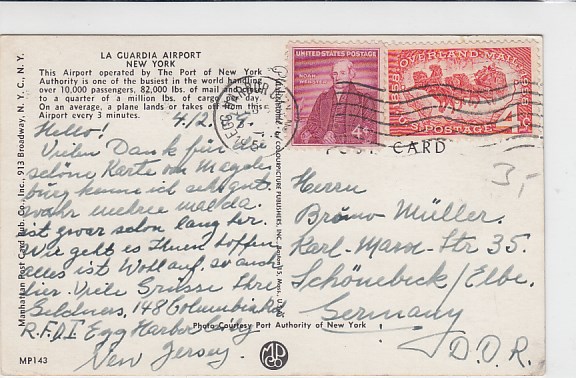 LA GUARDIA AIRPORT
NEW YORK
This Airport operated by The Port of New York
Authority is one of the busiest in the world handling
over 10,000 passengers, 82,000 lbs. of mail and close
to a quarter of a million lbs. of cargo per day.
On an average, a plane lands or takes off from this
Airport every 3 minutes.
Hello! 4/2.
Vielen Dank für die
schöne Karte von Magde
burg kenne ich sehr gut
wahr mehrere mal da.
ist zwar schon lang her.
Wie geht es Ihnen hoffen
alles ist Wohlauf, so auch
hier. Viele Grüsse Ihre
Geldners, 148 Columbia
R.F.D.1 Egg Harbor City
New Jersey.
MP143
Manhattan Post Card Pub. Co., Inc., 913 Broadway, N. Y. C., N. Y.
Photo Courtesy Port Authority of New York
UNITED STATES POSTAGE
NOAH
WEBSTER
4¢
OVERLAND MAIL
U.S. POSTAGE
4
CARD
3,-
Herrn
Bruno Müller.
Karl-Marx-Str 35.
Schönebeck/Elbe.
Germany
D.D.R.